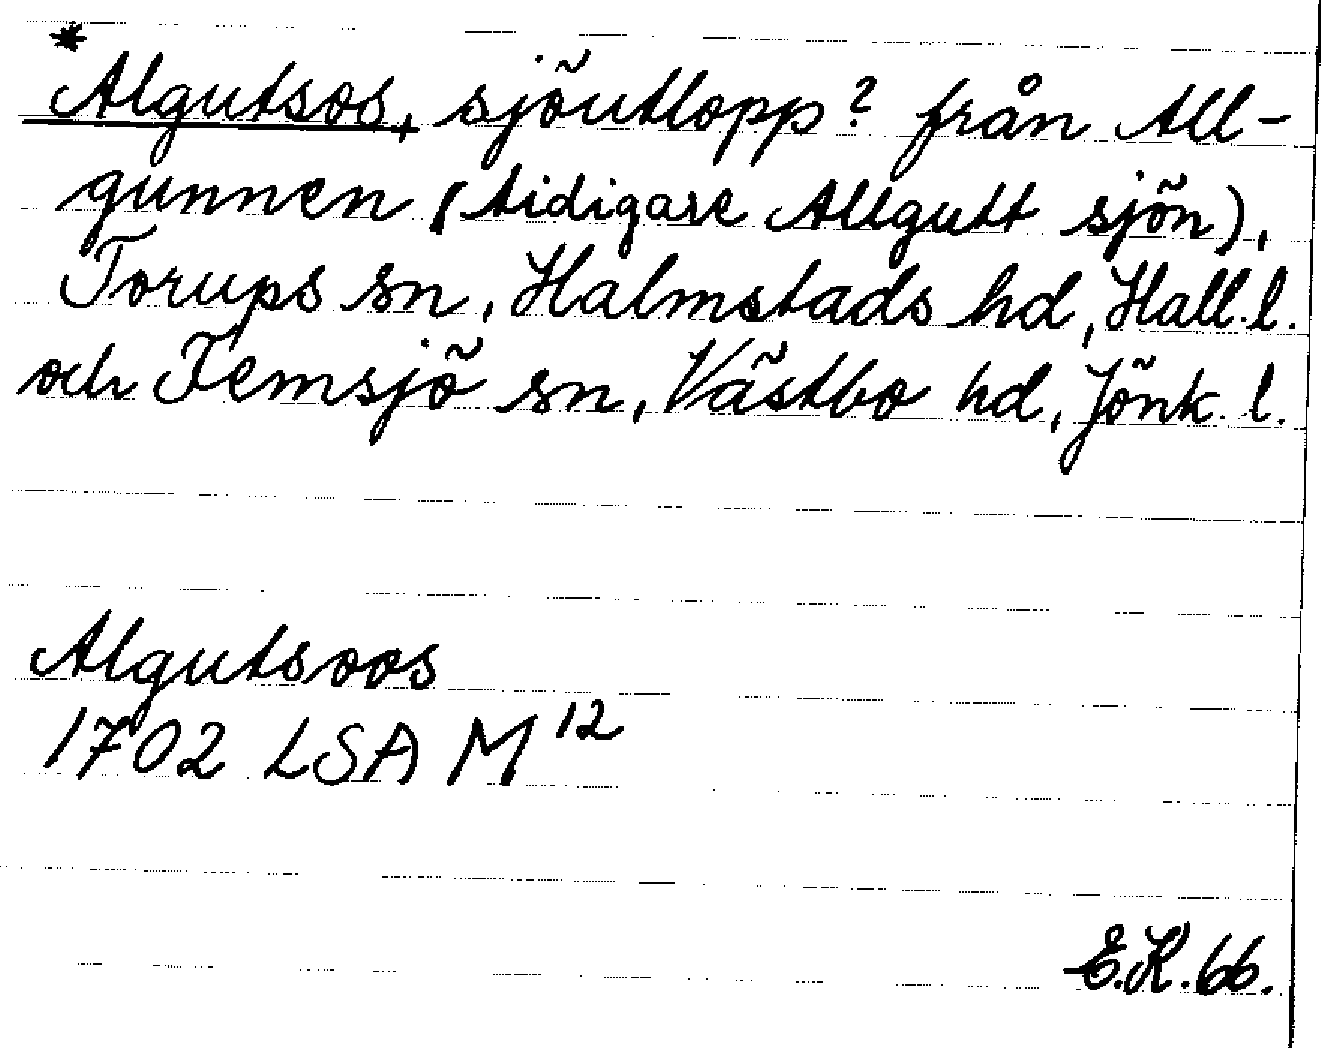 *
Algutsos, sjöutlopp? från All-
gunnen (tidigare Allgutt sjön),
Torups sn, Halmstads hd, Hall. l.
och Femsjö sn, Västbo hd, Jönk. l.
Algutsoos
1702 LSA M 12
E.K. 66.